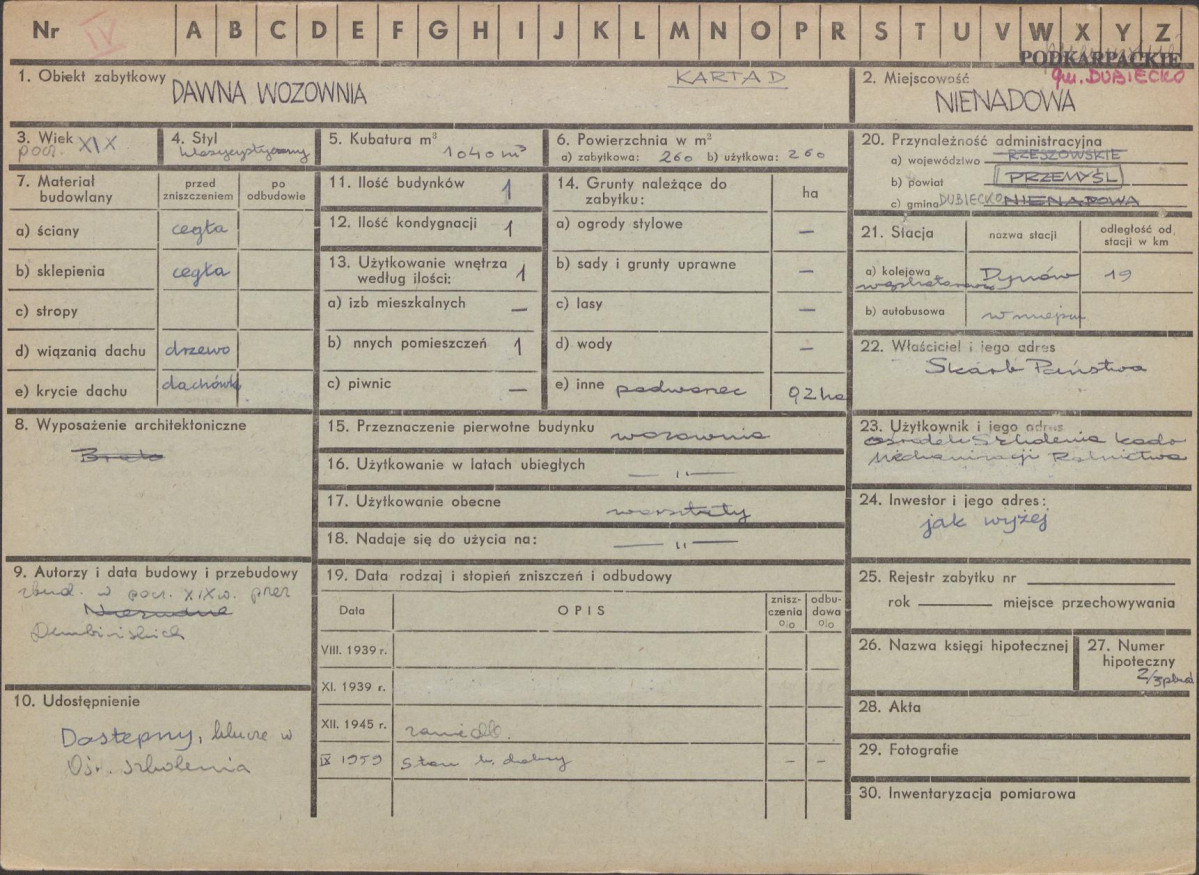 Nr IV A B C D E F G H I J K L M N O P R S T U V W X Y Z
PODKARPACKIE
1. Obiekt zabytkowy
DAWNA WOZOWNIA
KARTA D
2. Miejscowość
gm. DUBIECKO
NIENADOWA
3. Wiek
pocz. XIX
4. Styl
klasycystyczny
5. Kubatura m³
1040 m³
6. Powierzchnia w m²
a) zabytkowa: 260 b) użytkowa: 260
20. Przynależność administracyjna
a) województwo RZESZOWSKIE
b) powiat PRZEMYŚL
c) gmina DUBIECKO NIENADOWA
7. Materiał budowlany
przed zniszczeniem
po odbudowie
a) ściany cegła
b) sklepienia cegła
c) stropy
d) wiązania dachu drzewo
e) krycie dachu dachówka
11. Ilość budynków 1
12. Ilość kondygnacji 1
13. Użytkowanie wnętrza według ilości: 1
a) izb mieszkalnych —
b) nnych pomieszczeń 1
c) piwnic —
14. Grunty należące do zabytku:
ha
a) ogrody stylowe —
b) sady i grunty uprawne —
c) lasy —
d) wody —
e) inne podworzec 0,2 ha
21. Stacja
nazwa stacji
odległość od stacji w km
a) kolejowa
wąskotorowa Dynów 19
b) autobusowa w miejscu
22. Właściciel i jego adres
Skarb Państwa
8. Wyposażenie architektoniczne
Brak
15. Przeznaczenie pierwotne budynku wozownia
16. Użytkowanie w latach ubiegłych — " —
17. Użytkowanie obecne warsztaty
18. Nadaje się do użycia na: — " —
23. Użytkownik i jego adres
Ośrodek Szkolenia kadr
Mechanizacji Rolnictwa
24. Inwestor i jego adres:
jak wyżej
9. Autorzy i data budowy i przebudowy
zbud. w pocz. XIX w. przez
Dembińskich
19. Data rodzaj i stopień zniszczeń i odbudowy
Data
OPIS
znisz-
czenia
%
odbu-
dowa
%
VIII. 1939 r.
XI. 1939 r.
XII. 1945 r. zaniedb.
IX 1959 Stan b. dobry — —
25. Rejestr zabytku nr
rok miejsce przechowywania
26. Nazwa księgi hipotecznej
27. Numer hipoteczny
10. Udostępnienie
Dostępny, klucze w
Ośr. szkolenia
28. Akta
29. Fotografie
30. Inwentaryzacja pomiarowa